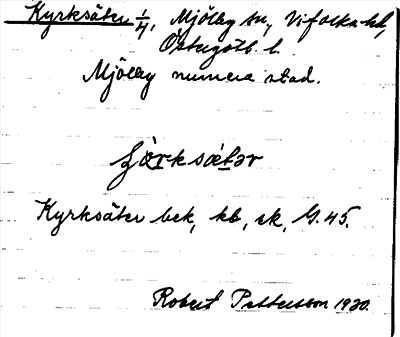 Kyrksäter 1/4, Mjölby sn, Vifolka hd,
Östergötl. l.
Mjölby numera stad.
Kyrksäter bek, kb, sk, G. 45.
Robert Pettersson 1920.